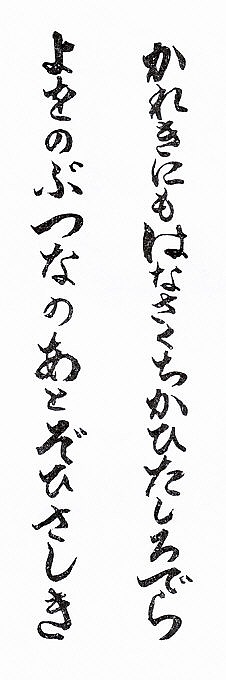 かれきにもはなさくちかひたしろでら
よをのぶつなのあとぞひさしき